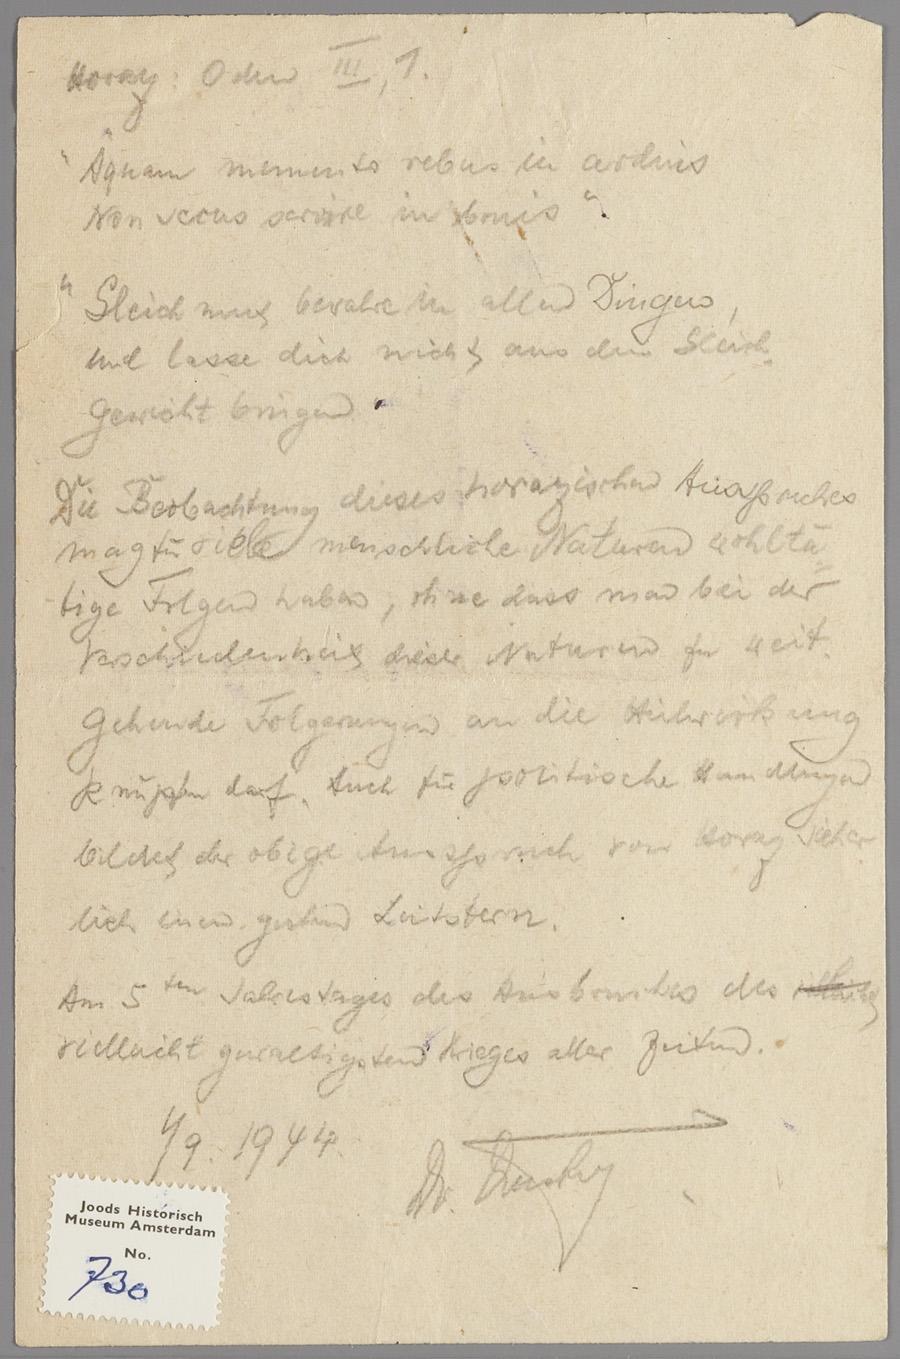 Horaz: Oden III, 1.
"Äquam memento rebus in arduis
Non secus servire in bonis".
"Gleichmut bewahre in allen Dingen,
und lasse dich nicht aus dem Gleich-
gewicht bringen"
Die Beobachtung dieses horazischen Ausspruches
mag für viele menschliche Naturen wohltä-
tige Folgen haben, ohne dass man bei der
Verschiedenheit dieser Naturen zu weit-
gehende Folgerungen an die Auswirkung
knüpfen darf. Auch für politische Handlungen
bildet der obige Ausspruch von Horaz sicher-
lich einen guten Leitstern.
Am 5ten Jahrestages des Ausbruches des
vielleicht gewaltigsten Krieges aller Zeiten.
1/9. 1944.
Dr.
Joods Historisch
Museum Amsterdam
No.
730